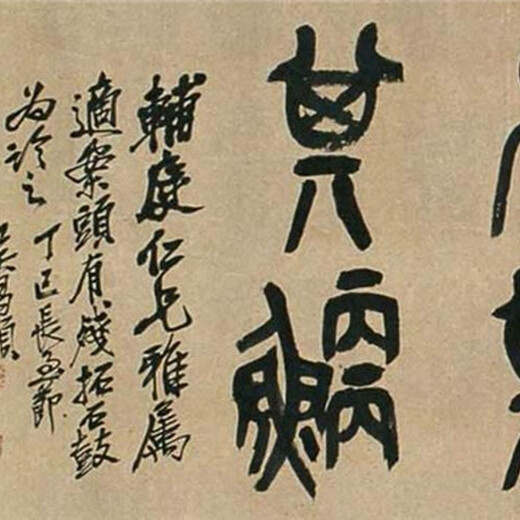 其鯾
輔庭仁兄雅屬
適案頭有殘拓石鼓
為臨之丁巳長至節
吳昌碩